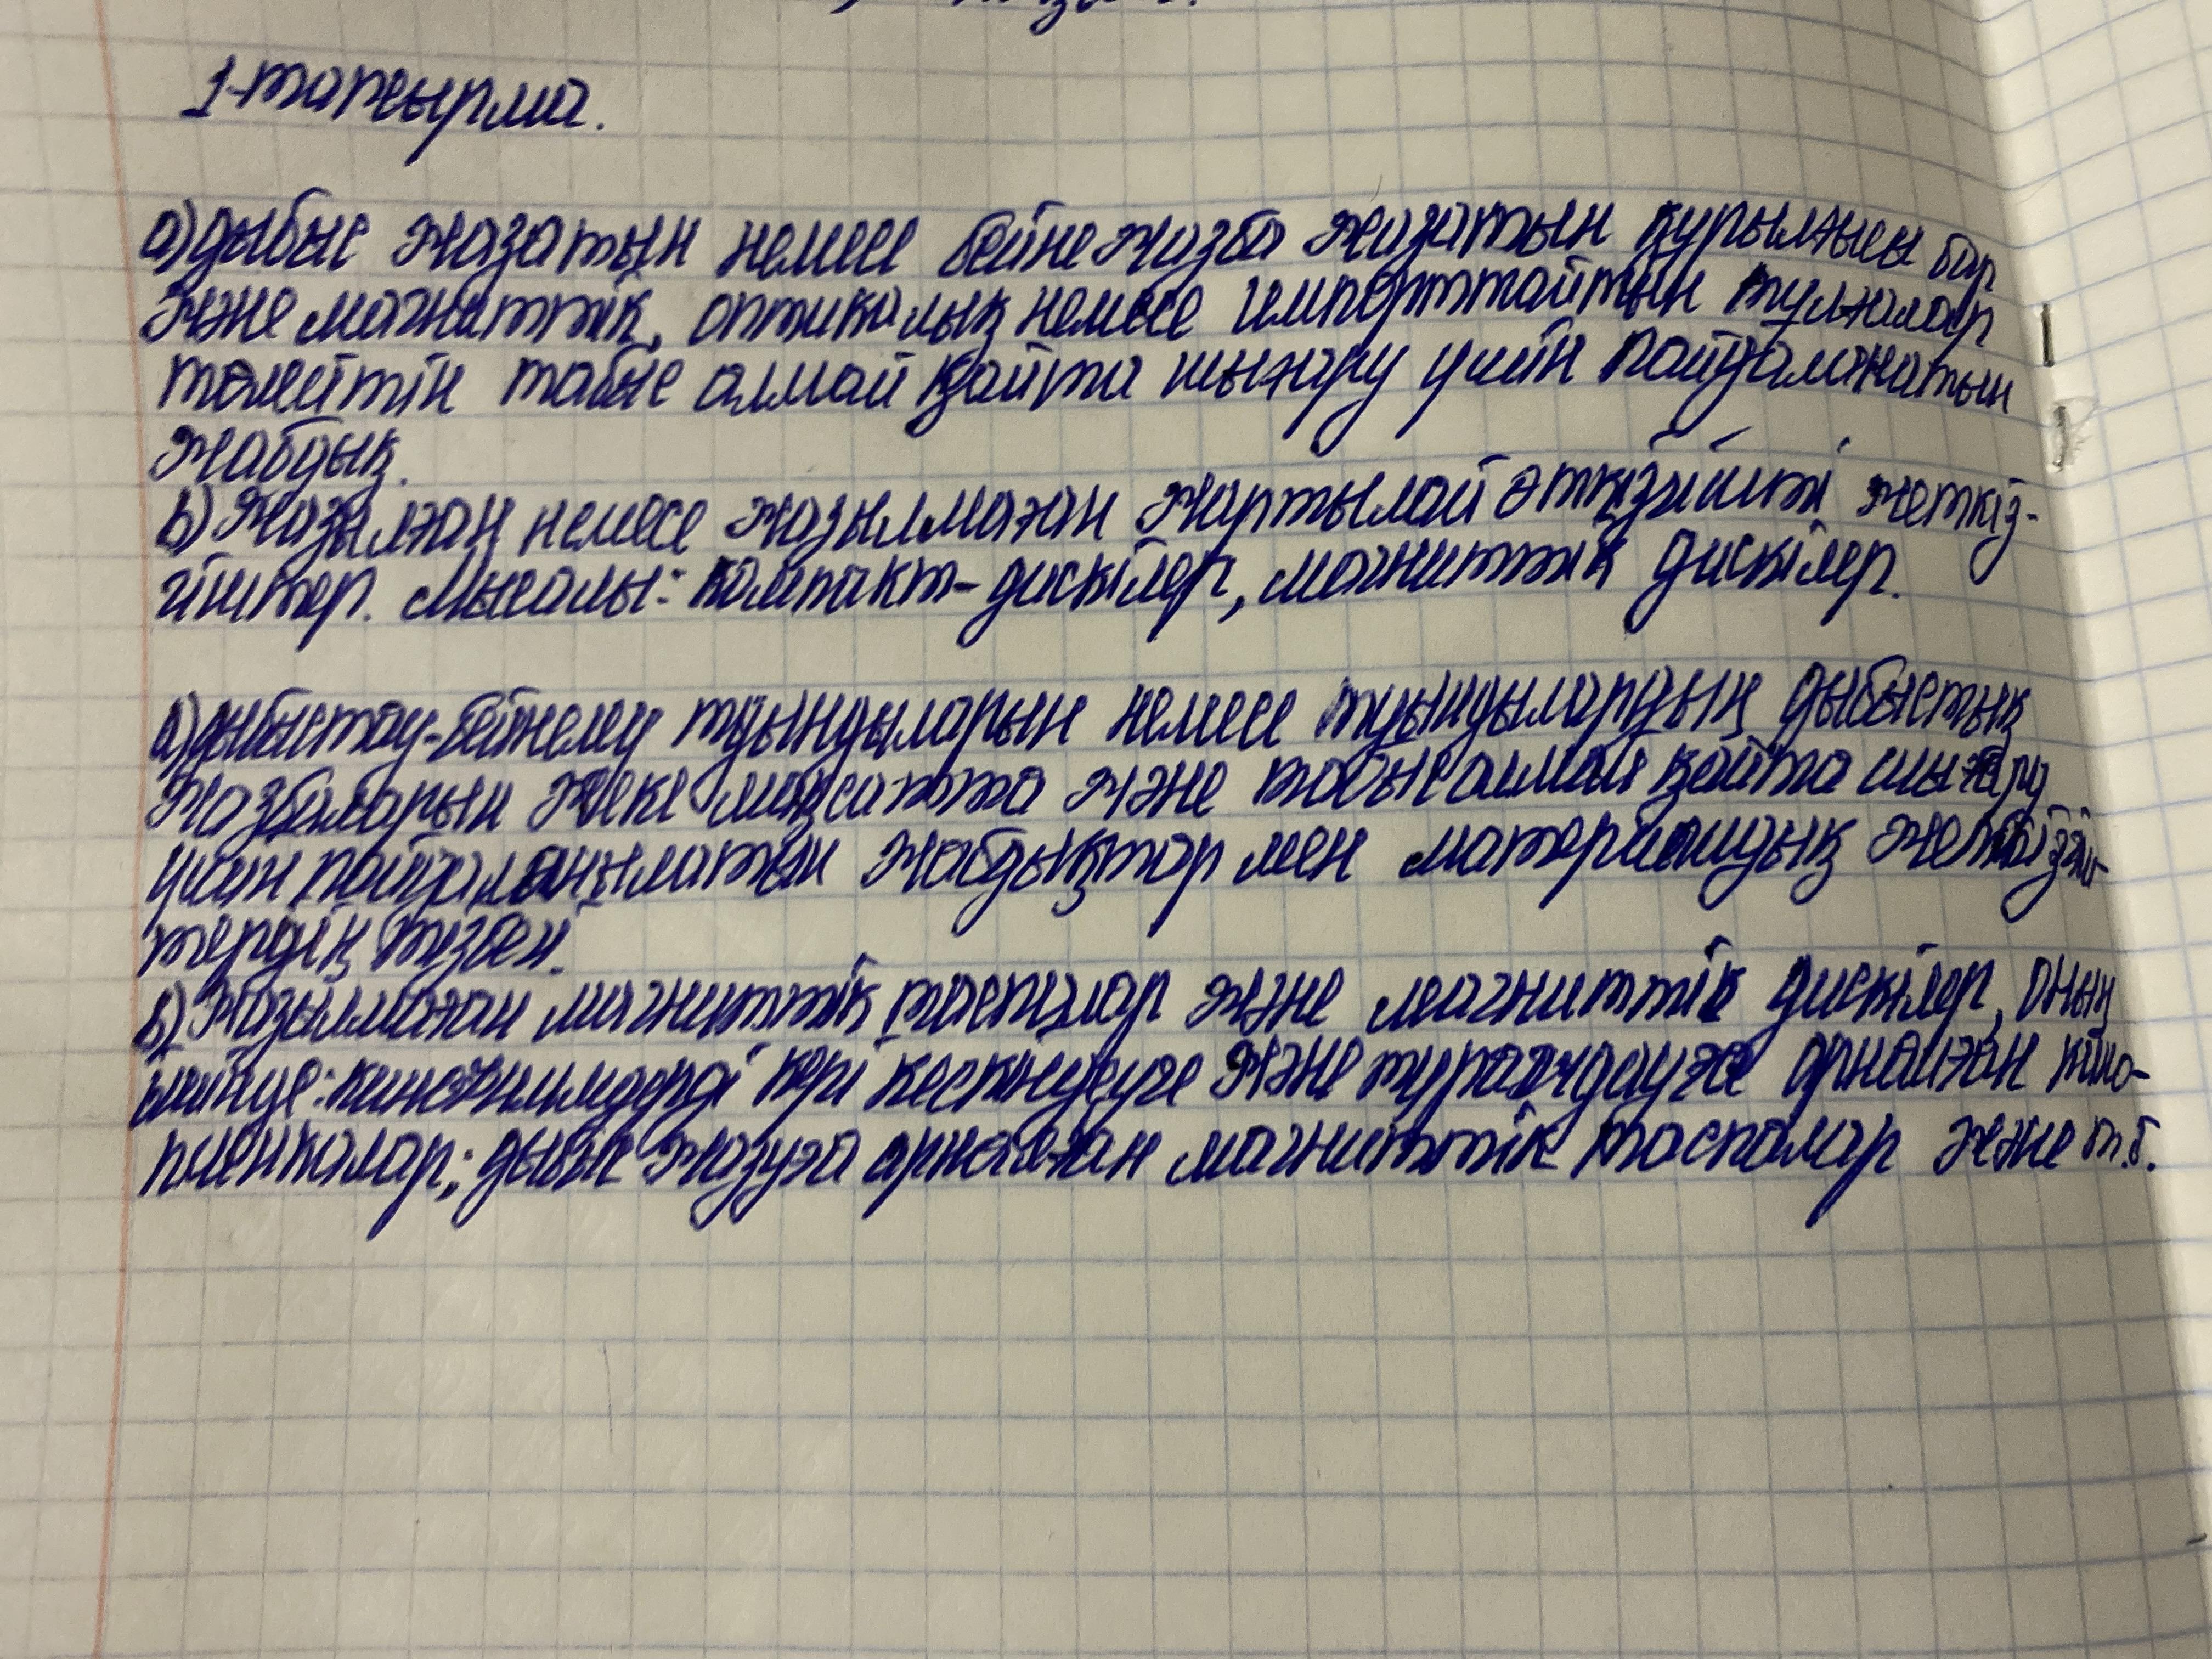 1-тапсырма.
а) дыбыс жазатын немесе бейнежазба жазатын құрылғысы бар
және магниттік, оптикалық немесе импорттайтын тұлғалар
төлейтін табыс алмай қайта шығару үшін пайдаланатын
жабдық.
b) Жазылған немесе жазылмаған жартылай өткізгішті жеткіз-
гіштер. Мысалы: компакт-дискілер, магниттік дискілер.
а) дыбыстау-бейнелеу туындыларын немесе туындылардың дыбыстық
жазбаларын жеке мақсатта және табыс алмай қайта шығару
үшін пайдаланылатын жабдықтар мен материалдық жеткізгіш-
тердің тізбесі.
b) Жазылмаған магниттік таспалар және магниттік дискілер, оның
ішінде: кинофильмдерді кері кескіндеуге және тұрақтдауға арналған кино-
пленкалар; дыбыс жазуға арналған магниттік таспалар және т.б.